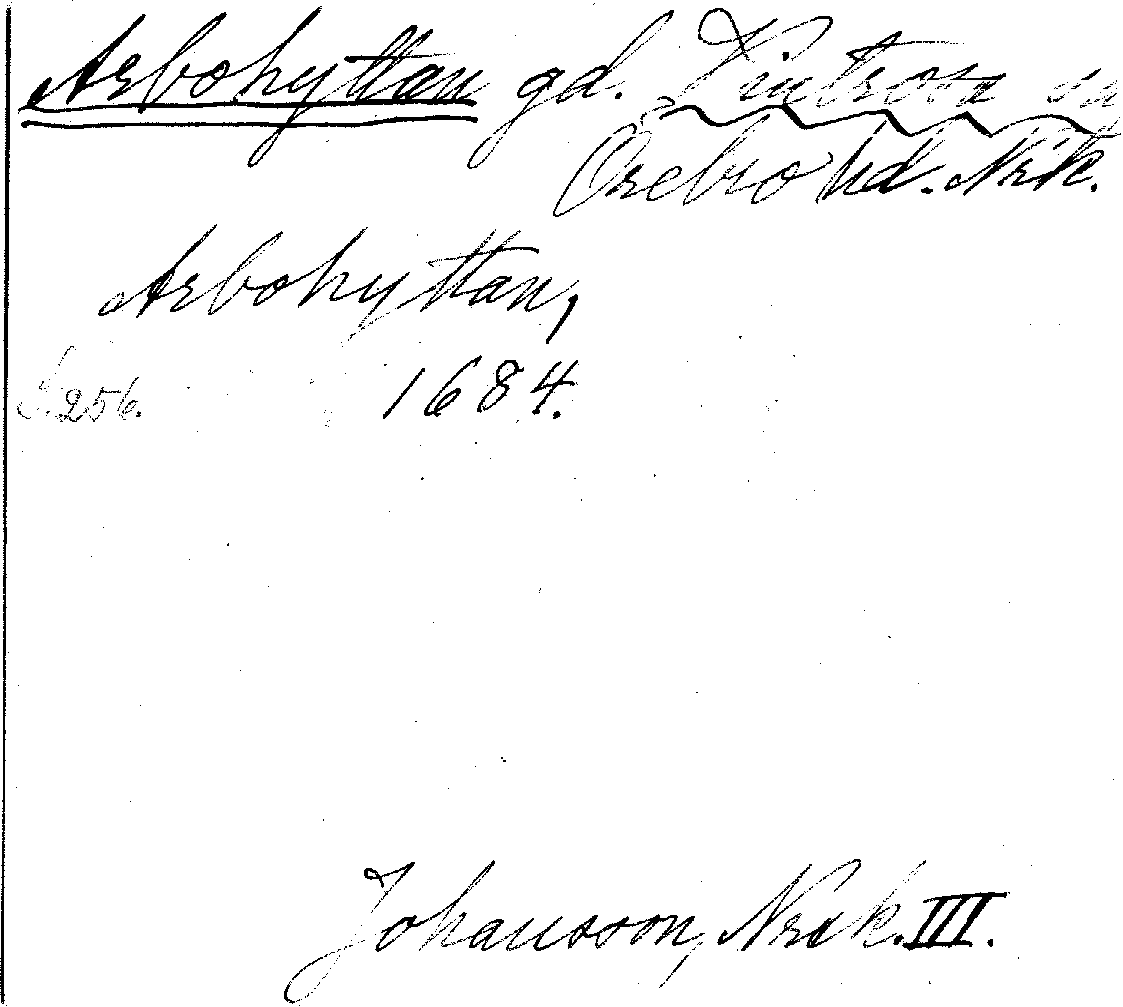 Arbohyttan gd. Kintrosa sn
Örebro hd. Nrk.
Arbohyttan,
S. 256. 1684.
Johansson, Nrk. III.